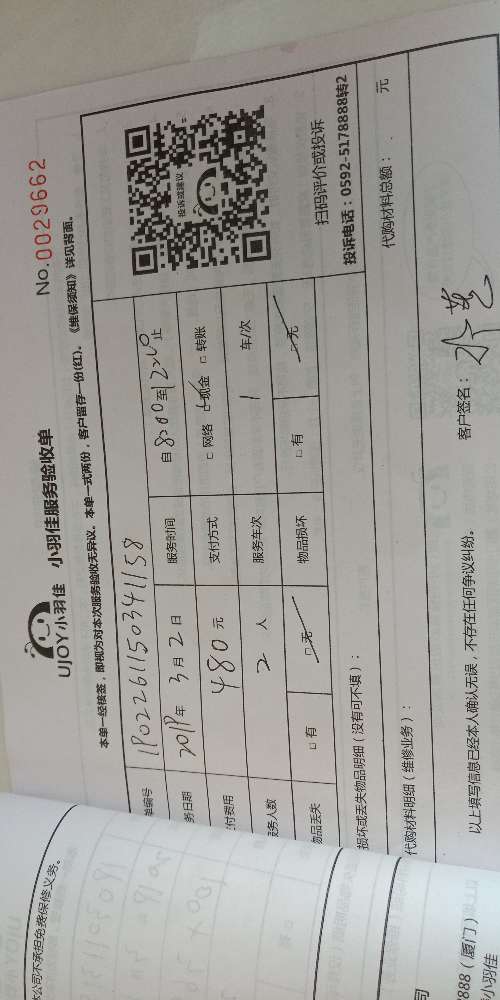 UJOY小羽佳 小羽佳服务验收单 No.0029662
本单一经核签，即视为对本次服务验收无异议。本单一式两份，客户留存一份(红)。《维保须知》详见背面。
单编号 1P02261150341158
务日期 2019年 3月 2日 服务时间 自 8:00 至 12:00 止
付费用 480 元 支付方式 □ 网络 □ 现金 □ 转账
服务人数 2 人 服务车次 1 车/次
物品丢失 □ 有 □ 无 物品损坏 □ 有 □ 无
投诉或建议
扫码评价或投诉
投诉电话：0592-5178888转2
损坏或丢失物品明细（没有可不填）：
代购材料明细（维修业务）： 代购材料总额： 元
以上填写信息已经本人确认无误，不存在任何争议纠纷。 客户签名：
公司不承担免费保修义务。
司
888（厦门）
小羽佳